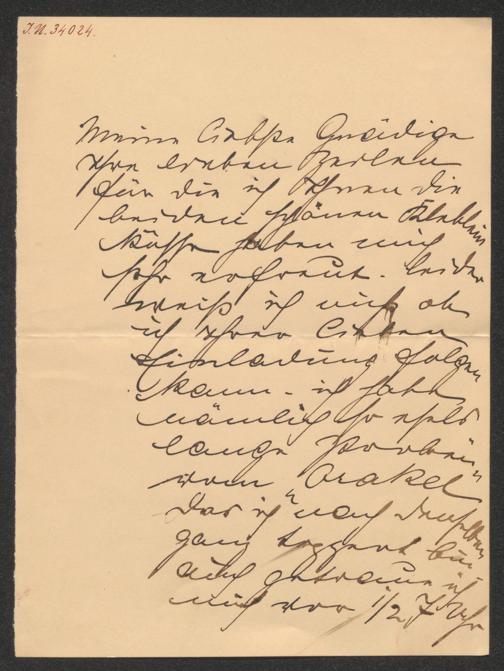 I.N. 34024.
Meine Liebste Gnädige
Ihre lieben Zeilen
für die ich Ihnen die
beiden schönen
Küsse haben mich
sehr erfreut. leider
weiß ich nicht ob
ich Ihrer lieben
Einladung folgen
kann - ich habe
nämlich so
lange Proben
vom "Orakel"
das ich nach denselben
ganz bin
auch getraue ich
mich vor 1/2 7 Uhr